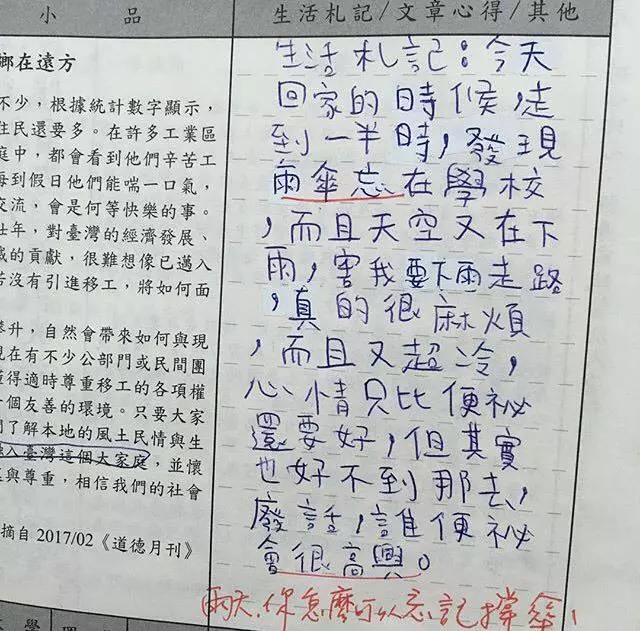 小 品
生活札記/文章心得/其他
鄉在遠方
不少，根據統計數字顯示，
住民還要多。在許多工業區
庭中，都會看到他們辛苦工
每到假日他們能喘一口氣，
交流，會是何等快樂的事。
壯年，對臺灣的經濟發展、
的貢獻，很難想像已邁入
若沒有引進移工，將如何面
升，自然會帶來如何與現
現在有不少公部門或民間團
懂得適時尊重移工的各項權
個友善的環境。只要大家
們了解本地的風土民情與生
入臺灣這個大家庭，並懷
與尊重，相信我們的社會
摘自 2017/02《道德月刊》
生活札記：今天
回家的時候，走
到一半時，發現
雨傘忘在學校
，而且天空又在下
雨，害我要下雨走路
，真的很麻煩
，而且又超冷，
心情只比便祕
還要好，但其實
也好不到那去，
廢話，誰便祕
會很高興。
雨天，你怎麼可以忘記撐傘！